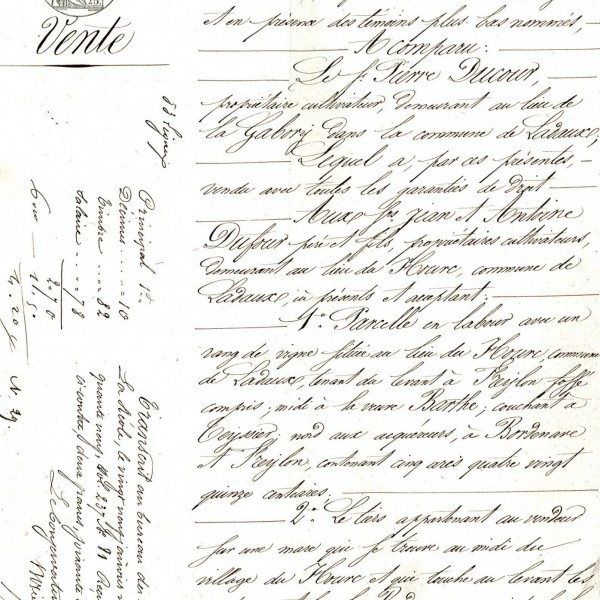 Vente
et en présence des témoins plus bas nommés,
A comparu:
Le sr. Pierre Ducour,
propriétaire cultivateur, demeurant au lieu de
la Gabory dans la commune de Ladaux;
Lequel a, par ces présentes,
vendu avec toutes les garanties de droit
Aux srs Jean et Antoine
Dufour père et fils, propriétaires cultivateurs,
demeurant au lieu du Houre, commune de
Ladaux, ici présents et acceptant:
1o Parcelle en labour avec un
rang de vigne située au lieu du Houre commune
de Ladaux, tenant du levant à Freylon fossé
compris; midi à la veuve Barthe; couchant à
Teyssier, nord aux acquéreurs, à Bordenave
et Freylon, contenant cinq ares quatre vingt
quinze centiares.
2o Le tiers appartenant au vendeur
sur une mare qui se trouve au midi du
village du Houre et qui touche au levant les
Principal 1"
Décime .... 10
Timbre .... 82
Salaire .... 78
2.70
N. 29.
Transcrit au bureau des
La Réole, le vingt neuf janvier
quante neuf, Vol. 237 No 81
ci contre, deux francs, soixante
Le Conservateur